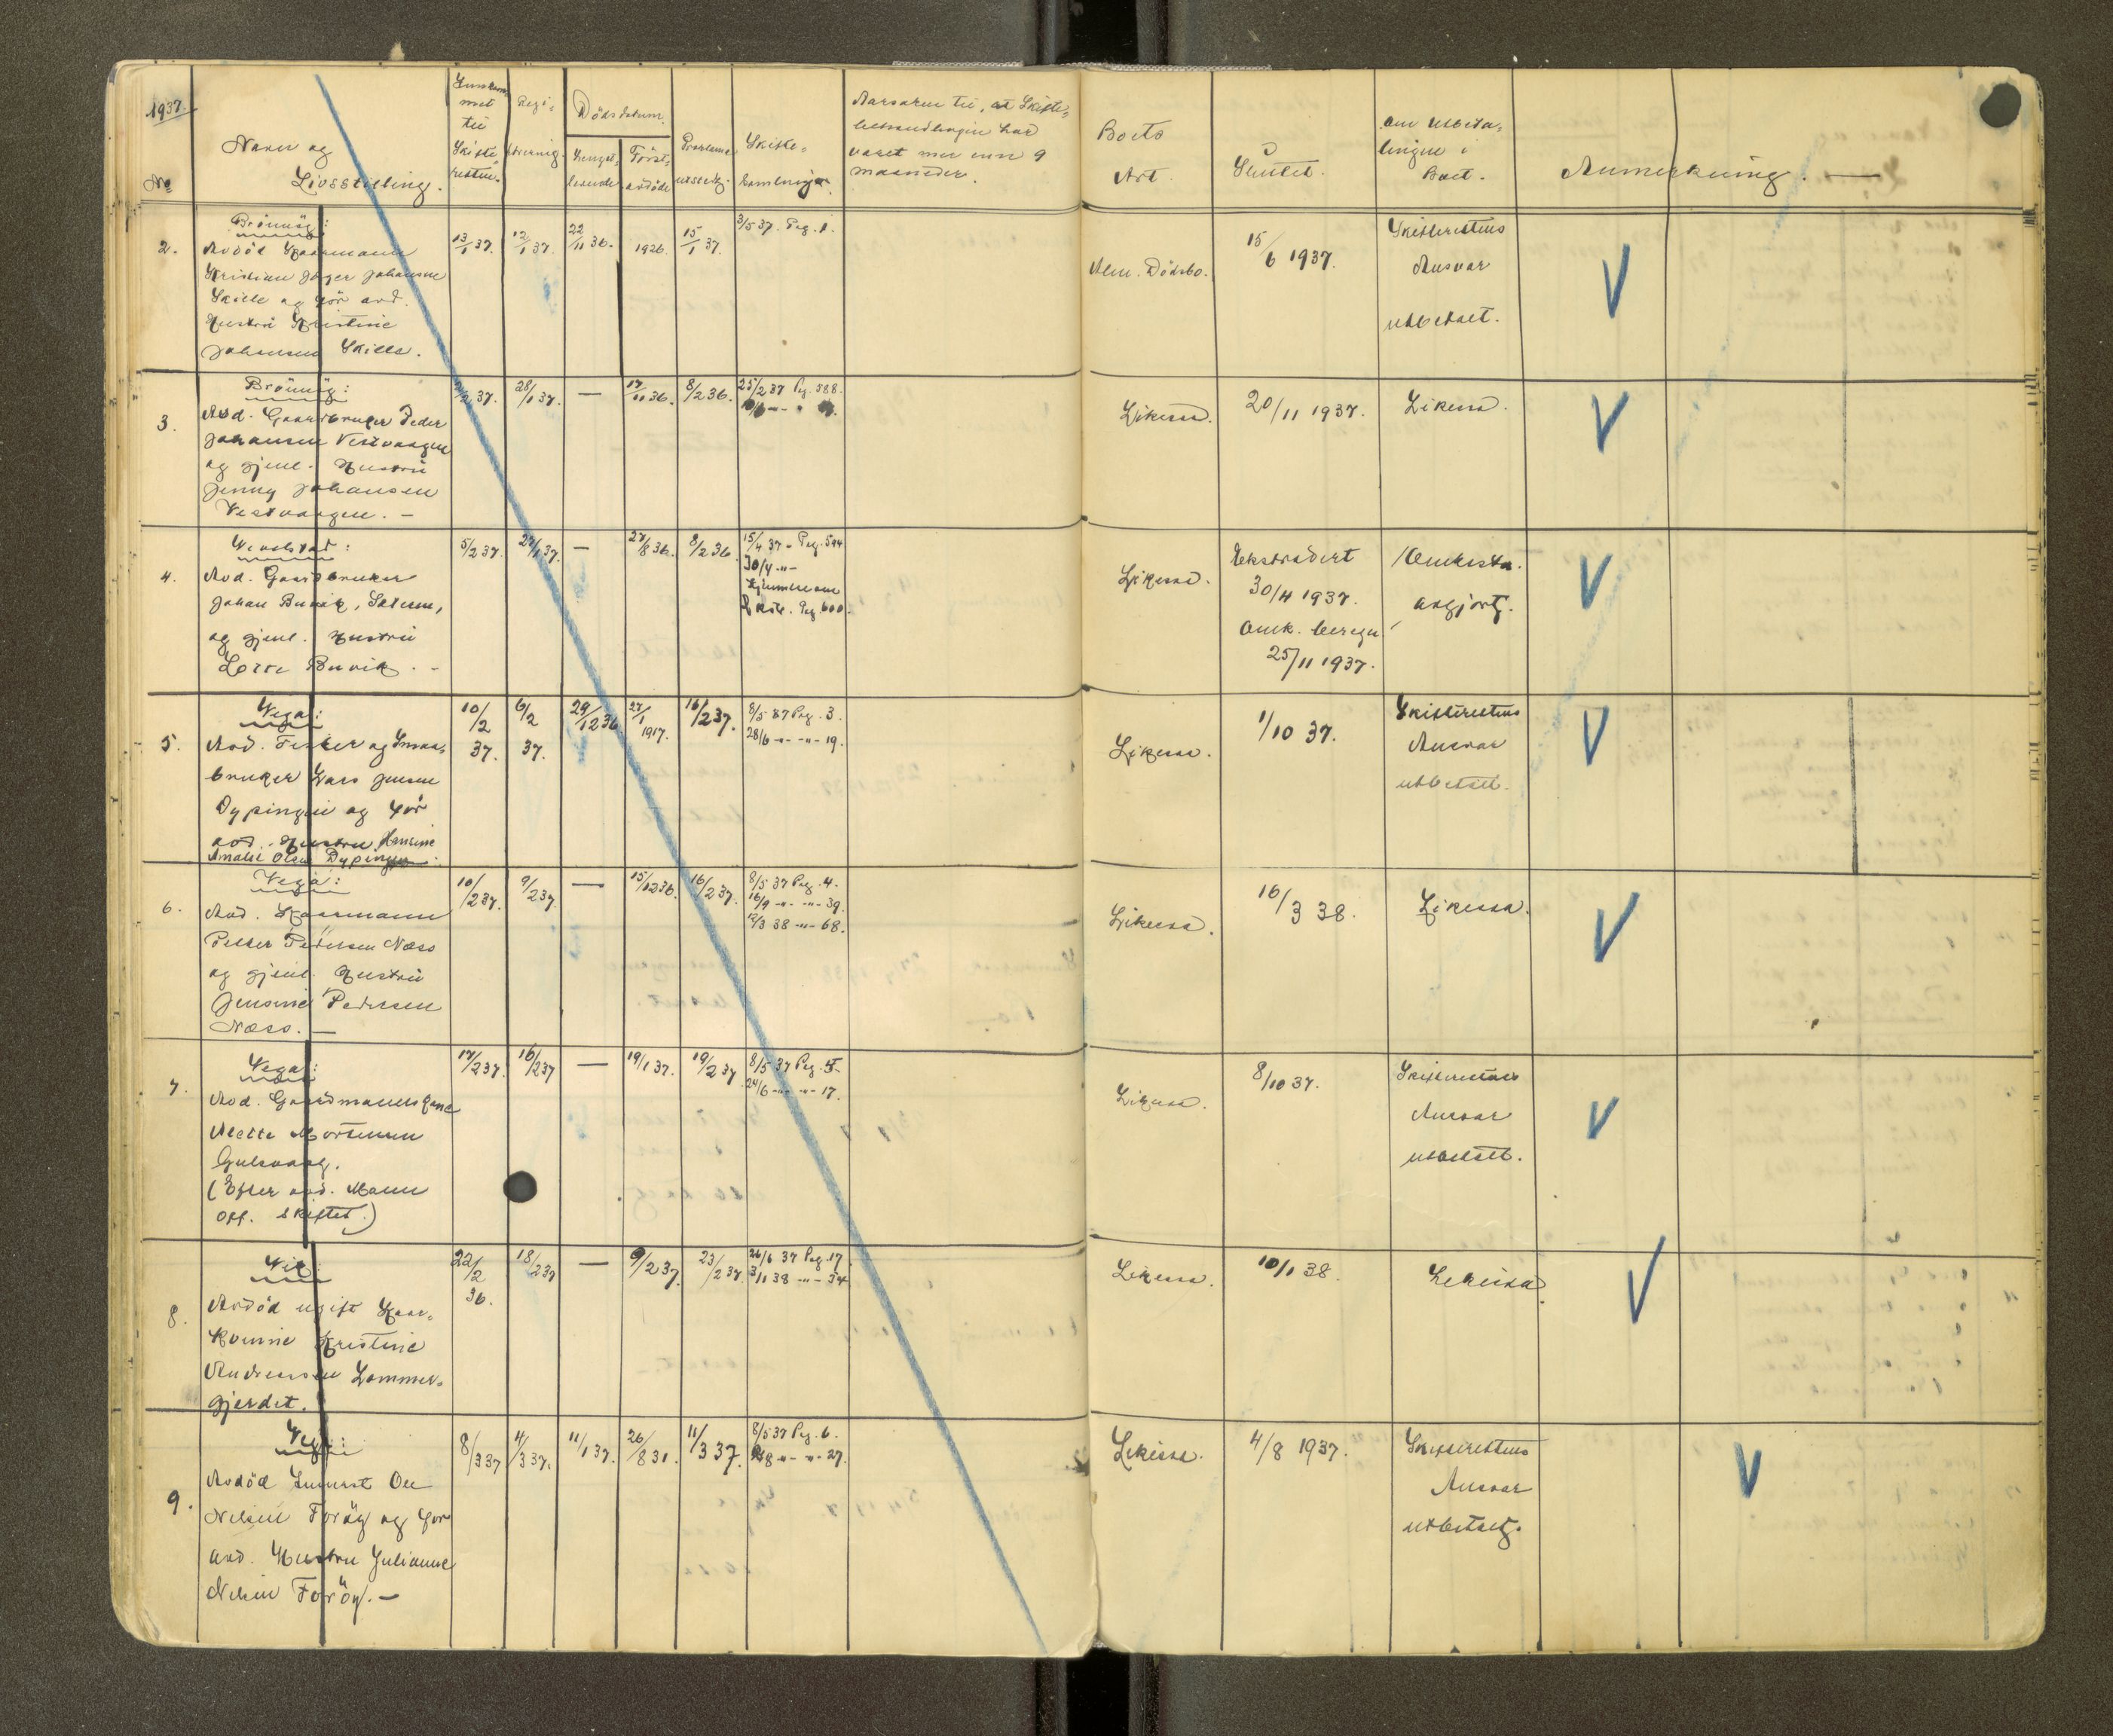 1937.
No
Navn og
Livsstilling.
Innkom-
met
til
Skifte-
retten.
Regi-
strering.
Dödsdatum.
Lengst-
levende
Först-
avdöde
Proklama
utstedt.
Skifte-
samlinger.
Aarsaken til, at Skifte-
behandlingen har
varet mer enn 9
maaneder.
Boets
Art.
Sluttet.
om Utbeta-
lingen i
Boet.
Anmerkning. —
2.
Brönnöy:
Avdöd Kaarmann
Kristian Jäger Johansen
Skille og för avd.
Hustru Kristine
Johansen Skille.
13/1 37.
12/1 37.
22/11 36.
1926.
15/1 37.
3/5 37. Pag. 1.
Alm. Dödsbo.
15/6 1937.
Skifterettens
Ansvar
utbetalt.
3.
Brönnöy:
Avd. Gaardbruker Peder
Johansen Vestvaagen
og gjenl. Hustru
Jenny Johansen
Vestvaagen. -
2/2 37.
28/1 37.
—
17/11 36.
8/2 36.
25/2 37 Pag. 588.
Likesaa.
20/11 1937.
Likesaa.
4.
Vevelstad:
Avd. Gaardbruker
Johan Buvik,
og gjenl. Hustru
Lotte Buvik. -
5/2 37.
27/1 37.
—
27/8 36.
8/2 36.
15/4 37 - Pag. 594
30/4 -"-
Pag. 600.
Likesaa.
Ekstradert
30/4 1937.
Omk. beregn.
25/11 1937.
Omkostn.
avgjort.
5.
Vega:
Avd. Fisker og Smaa-
bruker Lars Jensen
Dypingen og för
avd. Hustru Hansine
Amalie Olsen Dypingen.
10/2
37.
6/2
37.
29/12 36
27/1
1917.
16/2 37.
8/5 37 Pag. 3.
28/6 -"- -"- 19.
Likesaa.
1/10 37.
Skifterettens
Ansvar
utbetalt.
6.
Vega:
Avd. Kaarmann
Petter Pedersen Næss
og gjenl. Hustru
Jensine Pedersen
Næss. —
10/2 37.
9/2 37.
—
15/12 36.
16/2 37.
8/5 37 Pag. 4.
16/9 -"- -"- 39.
12/3 38 -"- 68.
Likesaa.
16/3 38.
Likesaa.
7.
Vega:
Avd. Gaardmannskone
Aletta Mortensen
Gulsvaag.
(Efter avd. Mann
off. skiftet.)
17/2 37.
16/2 37
—
19/1 37.
19/2 37
8/5 37 Pag. 5-
24/6 -"- -"- 17.
Likesaa.
8/10 37.
Skifterettens
Ansvar
utbetalt.
8.
Vik:
Avdöd ugift Kaar-
kvinne Kristine
Andreassen Lammer-
gjerdet.
22/2
36.
18/2 37
—
9/2 37.
23/2 37.
26/6 37 Pag. 17.
3/11 38 -"- 54
Likesaa.
10/1 38.
Likesaa.
9.
Vega:
Avdöd Inderst Ole
Nilsen Foröy og for
avd. Hustru Julianne
Nilsen Foröy. —
8/3 37
4/3 37.
11/1 37.
26/8 31.
11/3 37.
8/5 37 Pag. 6.
-"- -"- 27.
Likesaa.
4/8 1937.
Skifterettens
Ansvar
utbetalt.